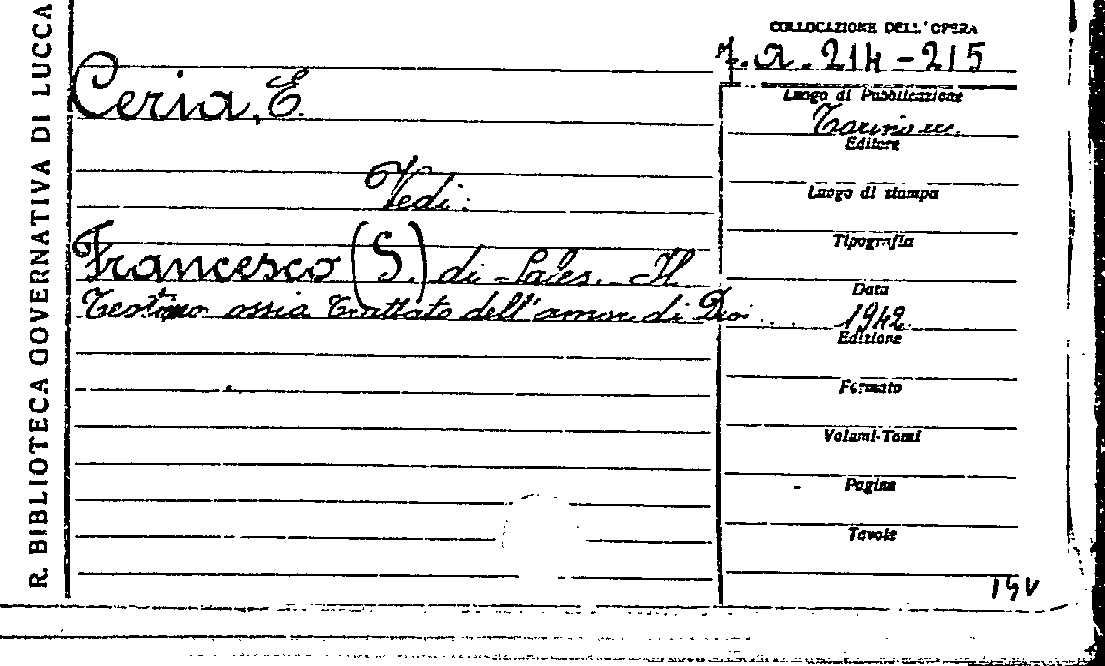 R. BIBLIOTECA GOVERNATIVA DI LUCCA
Ceria, E.
Vedi:
Francesco (S.) di Sales. Il
Teotimo ossia Trattato dell'amor di Dio...
COLLOCAZIONE DELL'OPERA
214-215
Luogo di Pubblicazione
Torino
Editore
Luogo di stampa
Tipografia
Data
1942
Edizione
Formato
Volumi-Tomi
Pagine
Tavole